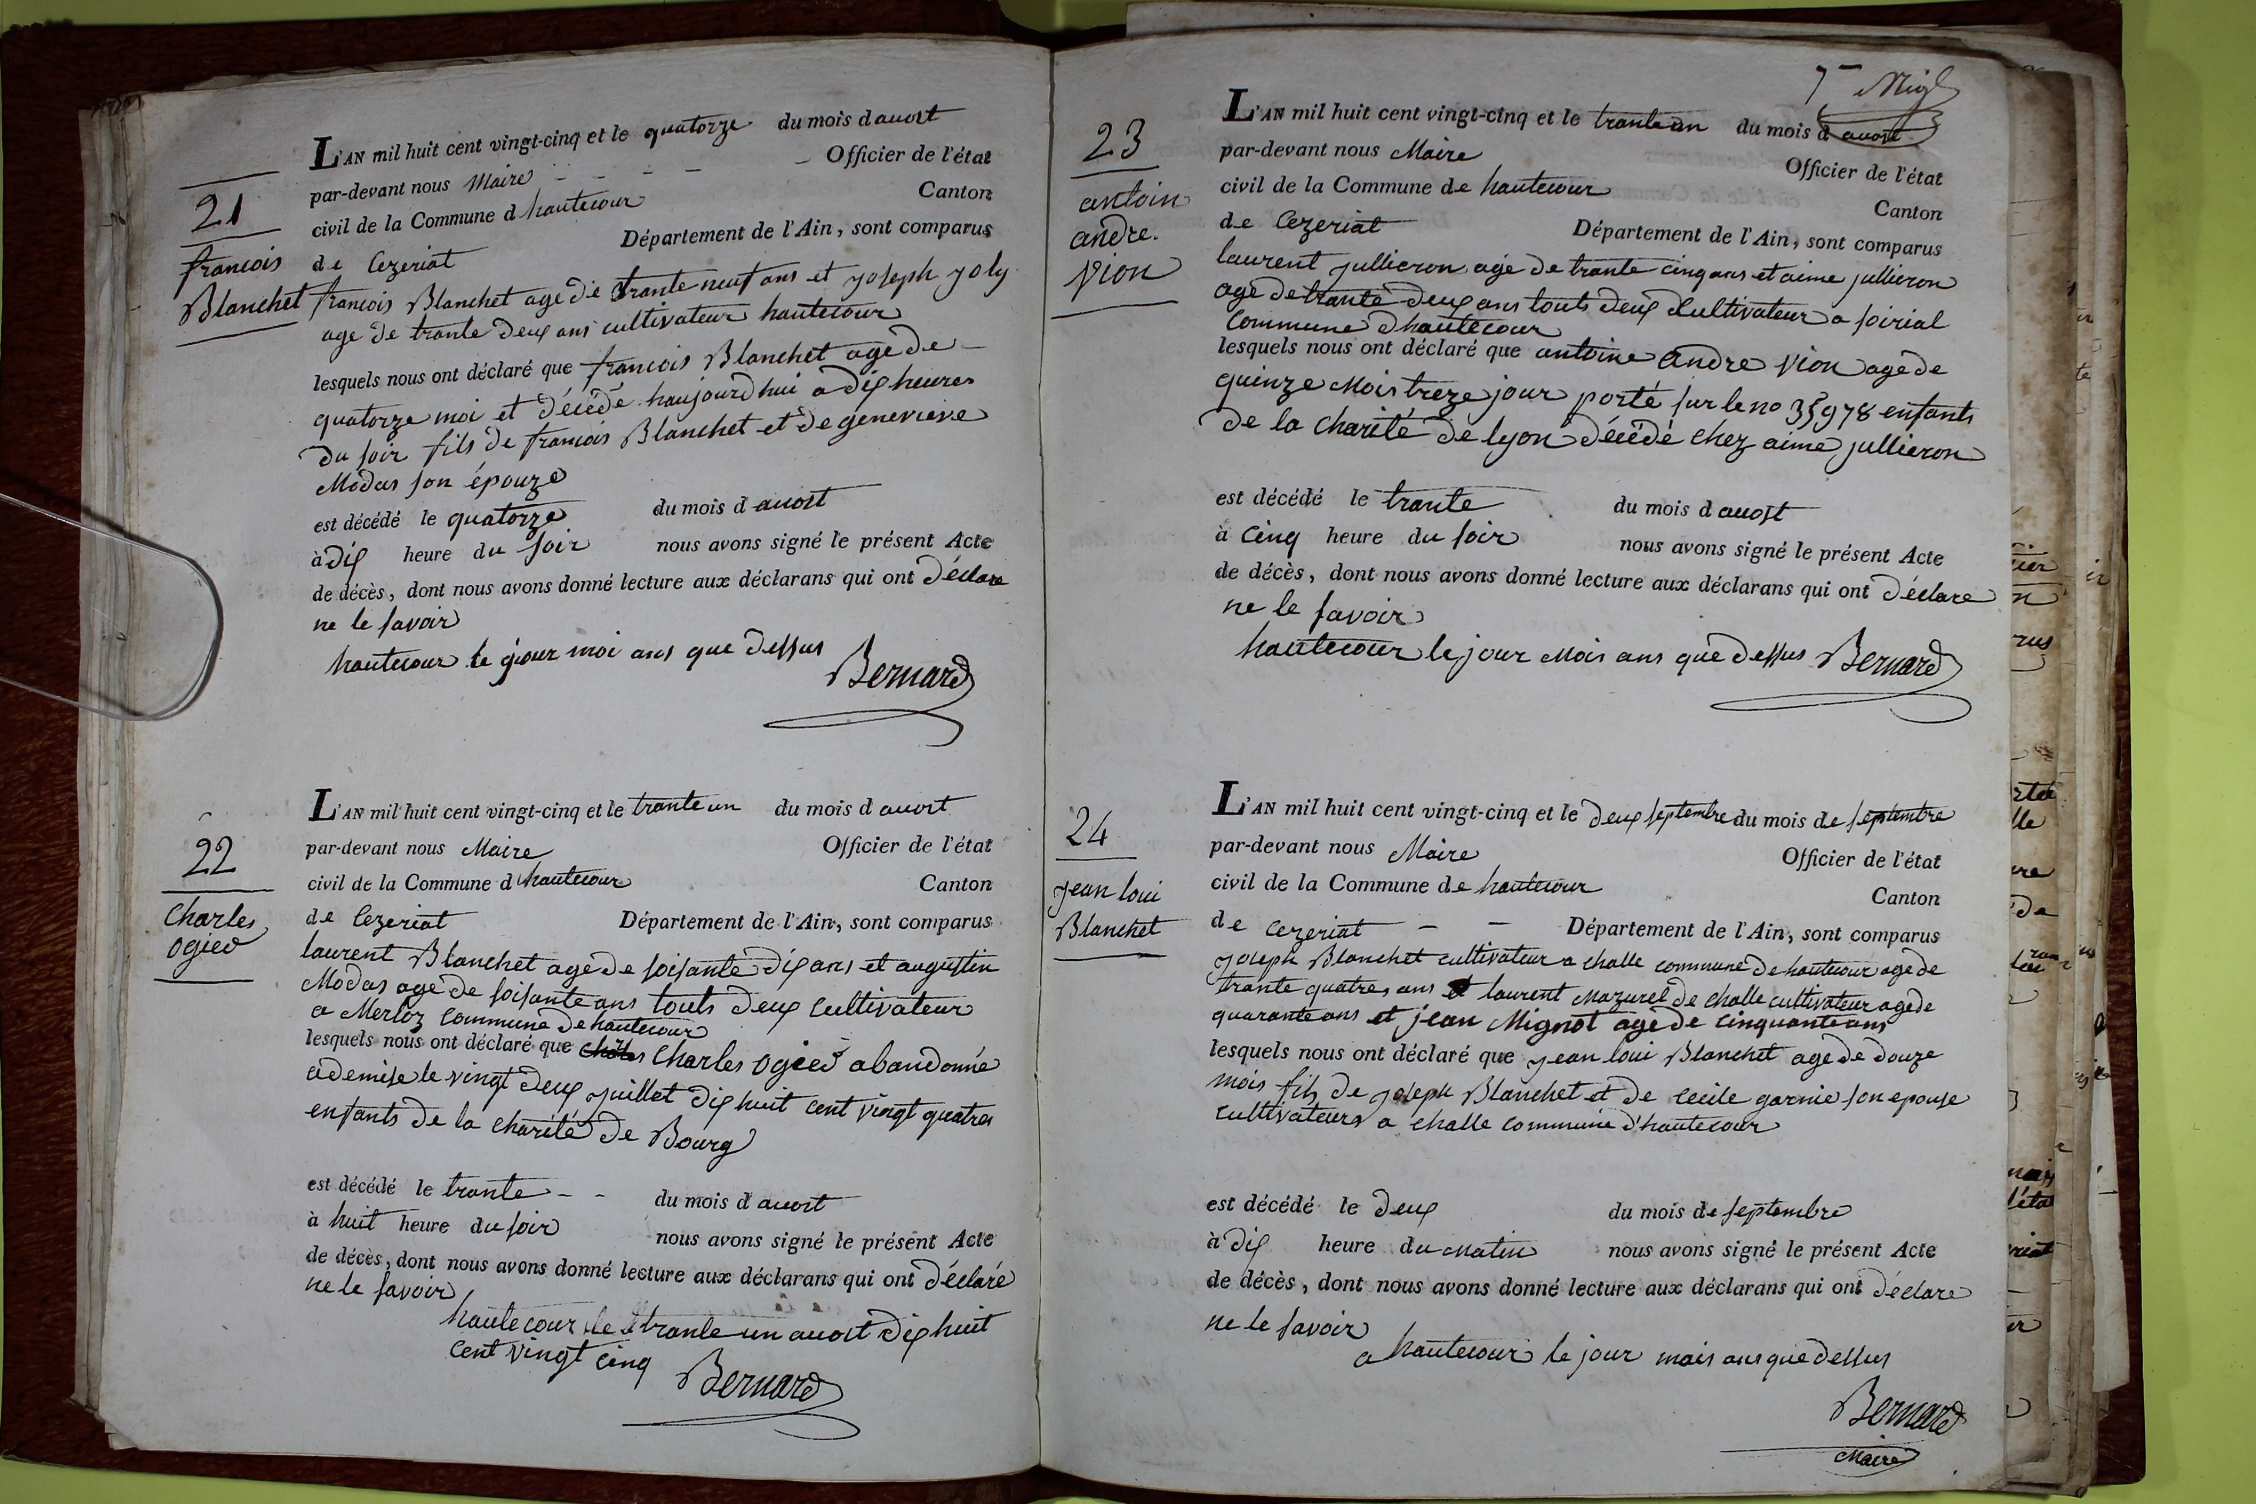 21
francois
Blanchet
L'AN mil huit cent vingt-cinq et le quatorze du mois d auost
par-devant nous Maire Officier de l'état
civil de la Commune d hautecour Canton
de Cezeriat Département de l'Ain, sont comparus
francois Blanchet age de trante neuf ans et joseph joly
age de trante deux ans cultivateur hautecour
lesquels nous ont déclaré que francois Blanchet age de
quatorze moi et décédé haujourdhui a dix heures
du soir fils de francois Blanchet et de genevieve
Modas son épouze
est décédé le quatorze du mois d auost
à dix heure du soir nous avons signé le présent Acte
de décès, dont nous avons donné lecture aux déclarans qui ont déclare
ne le savoir
hautecour le jour moi ans que dessus
Bernard
22
Charles
ogied
L'AN mil huit cent vingt-cinq et le trante un du mois d auost
par-devant nous Maire Officier de l'état
civil de la Commune d hautecour Canton
de Cezeriat Département de l'Ain, sont comparus
laurent Blanchet age de soisante dix ans et augustin
Modas age de soisante ans touts deux cultivateur
a Merloz commune de hautecour
lesquels nous ont déclaré que Charles ogied abandonné
ademise le vingt deux juillet dix huit cent vingt quatres
enfants de la charité de Bourg
est décédé le trante du mois d auost
à huit heure du soir nous avons signé le présent Acte
de décès, dont nous avons donné lecture aux déclarans qui ont déclaré
ne le savoir
hautecour le trante un auost dix huit
cent vingt cinq
Bernard
7
23
antoin
andre.
Vion
L'AN mil huit cent vingt-cinq et le trante un du mois d auost
par-devant nous Maire Officier de l'état
civil de la Commune de hautecour Canton
de Cezeriat Département de l'Ain, sont comparus
laurent jullieron age de trante cinq ans et aime jullieron
age de trante deux ans touts deux cultivateur a soirial
commune d hautecour
lesquels nous ont déclaré que antoine andre Vion age de
quinze Mois treze jour porté sur le no 35978 enfants
de la charité de lyon décédé chez aime jullieron
est décédé le trante du mois d auost
à Cinq heure du soir nous avons signé le présent Acte
de décès, dont nous avons donné lecture aux déclarans qui ont déclare
ne le savoir
hautecour le jour Mois ans que dessus Bernard
24
jean loui
Blanchet
L'AN mil huit cent vingt-cinq et le deux septembre du mois de septembre
par-devant nous Maire Officier de l'état
civil de la Commune de hautecour Canton
de cezeriat Département de l'Ain, sont comparus
joseph Blanchet cultivateur a challe commune de hautecour age de
trante quatres ans et laurent Mazurel de challe cultivateur age de
quarante ans et jean Mignot age de cinquante ans
lesquels nous ont déclaré que jean loui Blanchet age de douze
mois fils de joseph Blanchet et de cecile garnie son epouse
cultivateurs a challe commune d'hautecour
est décédé le deux du mois de septembre
à dix heure du matin nous avons signé le présent Acte
de décès, dont nous avons donné lecture aux déclarans qui ont déclare
ne le savoir
a hautecour le jour mois ans que dessus
Bernard
Maire